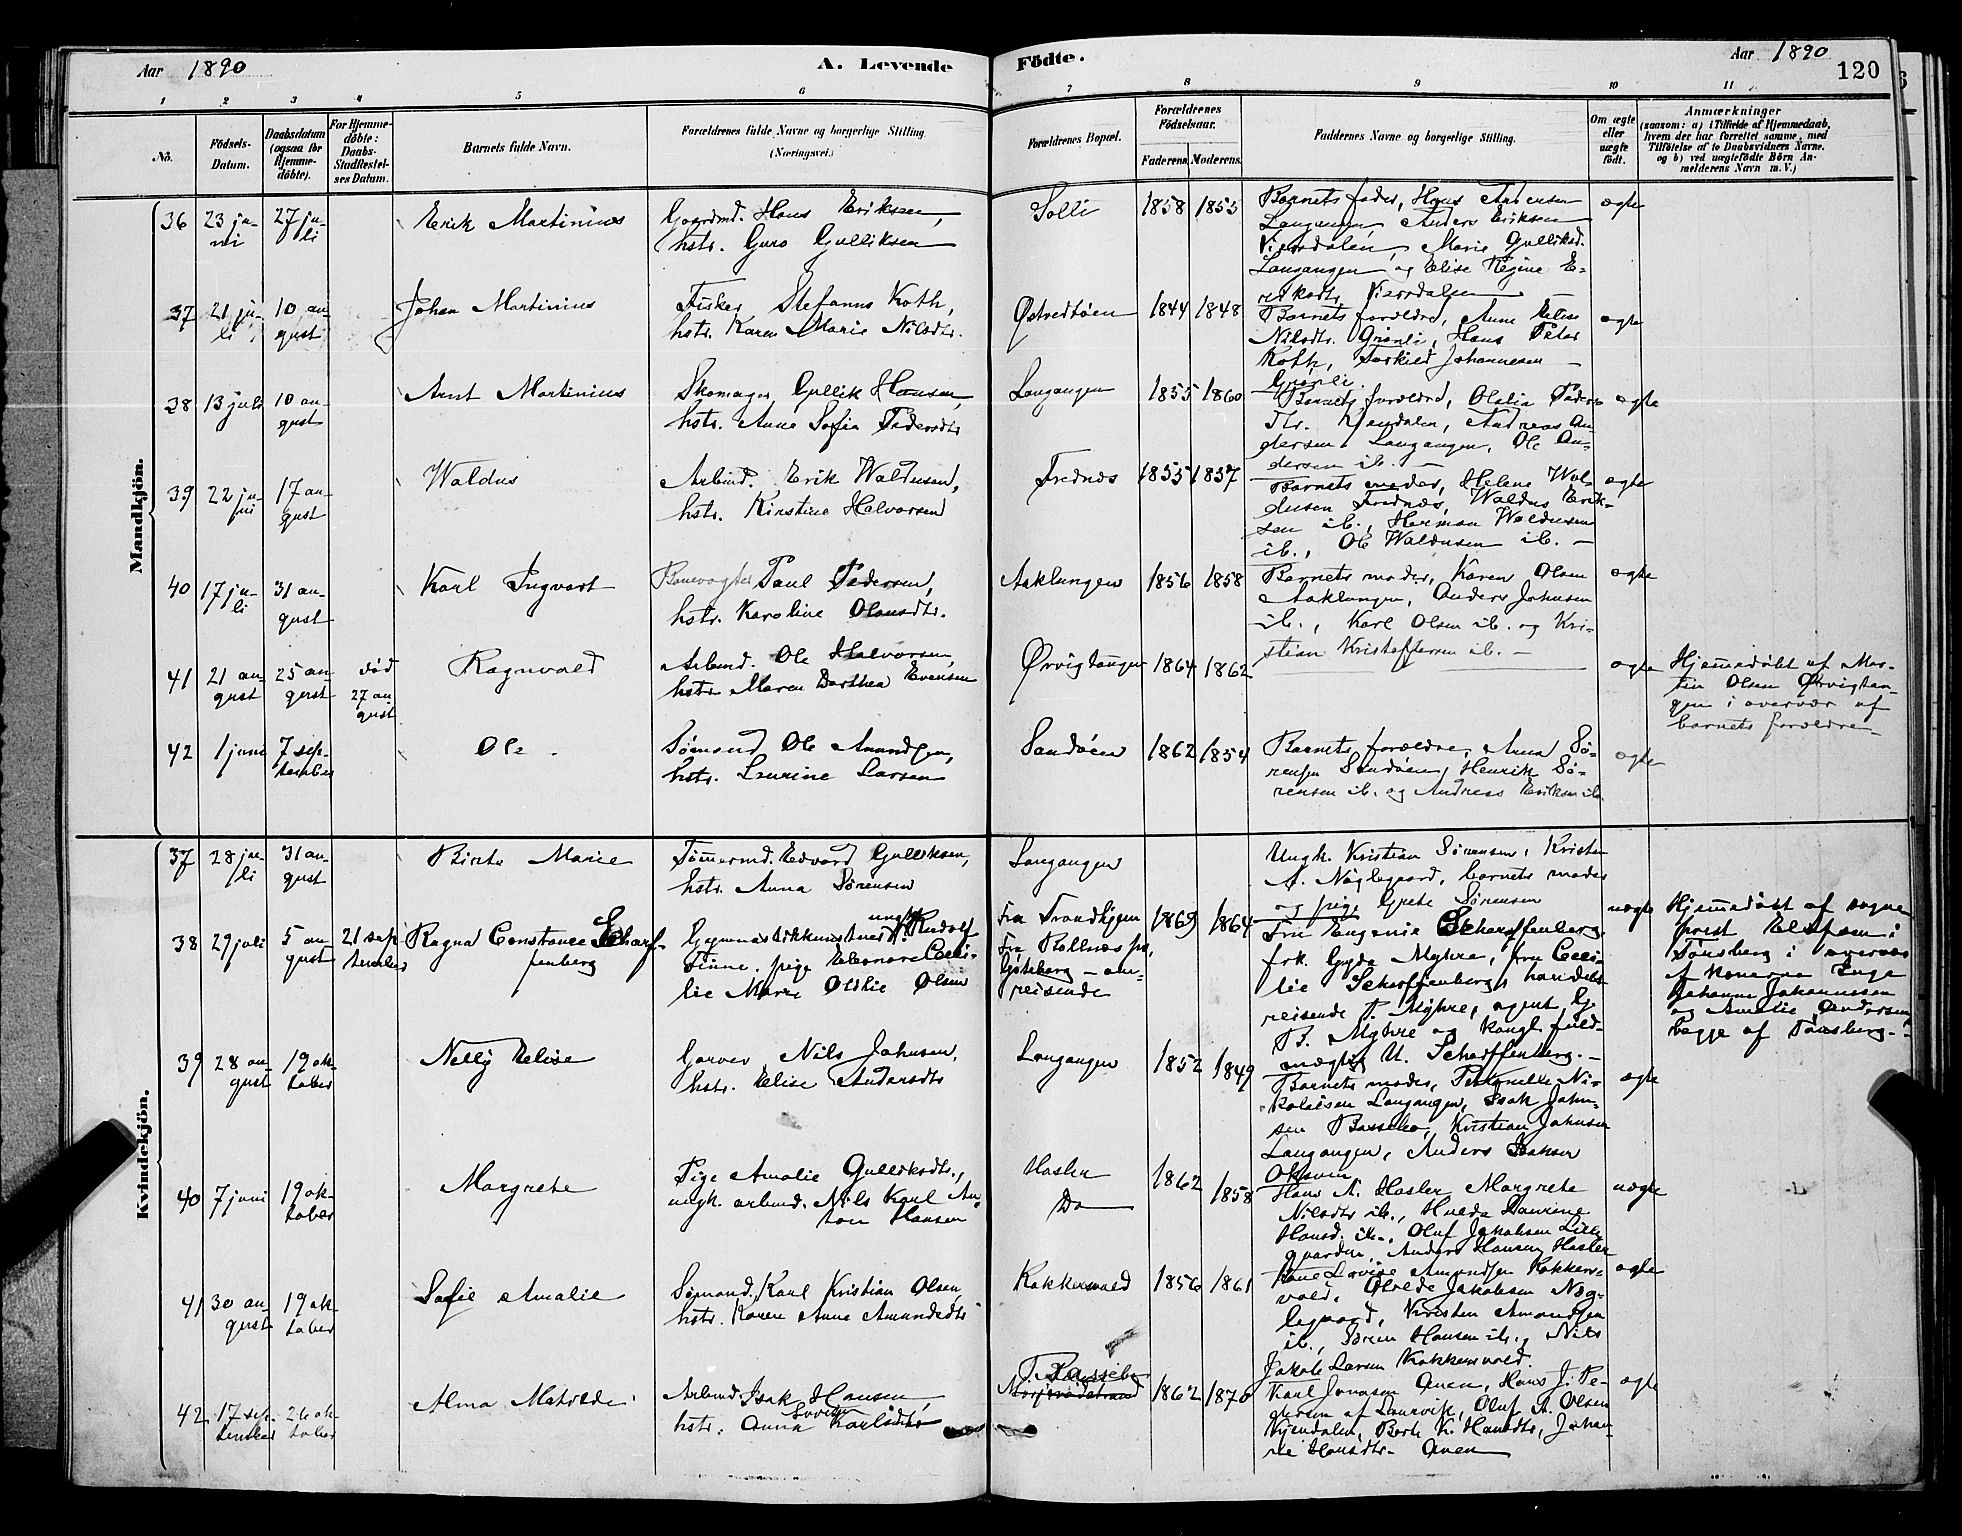 Aar 1890
A. Levende
Födte.
Aar 1890
120
1 2 3 4 5 6 7 8 9 10 11
No.
Födsels-
Datum.
Daabsdatum
(ogsaa for
Hjemme-
döbte).
For Hjemme-
döbte:
Daabs-
Stadfæstel-
ses Datum.
Barnets fulde Navn.
Forældrenes fulde Navne og borgerlige Stilling
(Næringsvei.)
Forældrenes Bopæl.
Forældrenes
Födselsaar.
Faderens. Moderens.
Faddernes Navne og borgerlige Stilling.
Om ægte
eller
uægte
født.
Anmærkninger
(saasom: a) i Tilfælde af Hjemmedaab,
hvem der har forrettet samme, med
Tilföielse af to Daabsvidners Navne.
og b) ved uægtefödte Börn An-
melderens Navn m. V.)
Mandkjön.
36 23 ju-
ni
27 ju-
li
Erik Martinius
Gaardmd. Hans Eriksen,
hstr. Guro Gulliksen
Solli
1858 1855
Barnets fader, Hans Andersen
Langangen, Anders Eriksen
Vierdalen, Marie Gulliksd.
Langangen og Elise Regine E-
riksdtr. Vierdalen
ægte
37 21 ju-
li
10 au-
gust
Johan Martinius
Fisker Stefanus Koth,
hstr. Karen Marie Nilsdtr.
Østvedtøen
1844 1848
Barnets forældre, Anne Elise
Nilsdtr. Grønli, Hans Peter
Koth, Torkild Johannesen
Grønli.
ægte
38 13 juli
10 au-
gust
Arnt Martinius
Skomager Gullik Hansen,
hstr. Anne Sofie Pedersdtr
Langangen
1855 1860
Barnets forældre, Olalia Peders-
dtr. Kjendalen, Andreas An-
dersen Langangen, Ole An-
dersen ib.
ægte
39 22 ju-
ni
17 au-
gust
Waldus
Arbmd. Erik Waldusen,
hstr. Kirstine Halvorsen
Frednæs
1855 1857
Barnets moder, Helene Wal-
dusen Frednæs, Waldus Erik-
sen ib., Herman Waldusen
ib., Ole Waldusen ib.
ægte
40 17 ju-
li
31 au-
gust
Karl Ingvart
Banevogter Paul Pedersen,
hstr. Karoline Olausdtr.
Aaklungen
1856 1858
Barnets moder, Karen Olsen
Aaklungen, Anders Johnsen
ib., Karl Olsen ib. og Kri-
stian Kristoffersen ib.
ægte
41 21 au-
gust
25 au-
gust
død
27 au-
gust
Ragnvald
Arbmd. Ole Halvorsen,
hstr. Maren Dorthea Evensen
Ørvigtangen
1864 1862
ægte
Hjemmedøbt af Mar-
tin Olsen Ørvigtan-
gen i overvær af
barnets forældre
42 1 juni
7 sep-
tember
Ole
Sømand Ole Amundsen,
hstr. Laurine Larsen
Sandøen
1862 1854
Barnets forældre, Anna Sø-
rensen Sandøen, Henrik Sø-
rensen ib. og Andreas Eriksen ib.
ægte
Kvindekjön.
37 28 ju-
li
31 au-
gust
Birte Marie
Tømmermd. Edvard Gulliksen,
hstr. Anna Sørensen
Langangen
Ungk. Kristian Sørensen, Kristen
A. Nøglegaard, barnets moder
og pige Grete Sørensen
38 29 juli
5 au-
gust
21 sep-
tember
Ragna Constance Scharf-
fenberg
ungk. Rudolf
Tinne. pige Eleonore Ceci-
lie Marie Olsen
Fra Trondhjem
Göteborg
reisende
1869 1864
Fru Eugenie Scharffenberg,
frk. Gyda Myhre, fru Ceci-
lie Scharffenberg, handels-
reisende P. Myhre, agent G.
B. Myhre og kongl. fuld-
mægtig U. Scharffenberg.
uægte
Hjemmedøbt af sogne-
prest
Tønsberg i overvær
af konerne Inge
Johanne Johannesen
og Amalie Andersen,
begge af Tønsberg.
39 28 au-
gust
19 ok-
tober
Nelly Elise
Garver Nils Johnsen,
hstr. Elise Andersdtr
Langangen
1852 1849
Barnets moder, Petronelle Ni-
kolaisen Langangen, Isak John-
sen Bassebo, Kristian Johnsen
Langangen, Anders Isaksen
Oksvin
ægte
40 7 juni
19 ok-
tober
Margrete
Pige Amalie Gulliksdtr.,
ungk. arbmd. Nils Karl An-
ton Hansen
Hasler
Do
1862 1858
Hans A. Hasler, Margrete
Nilsdtr ib., Hulda Laurine
Hansd. ib., Oluf Jakobsen Lille-
gaarden, Anders Hansen Hasler
uægte
41 30 au-
gust
19 ok-
tober
Sofie Amalie
Sømand Karl Kristian Olsen,
hstr. Karen Anne Amundsdtr
Kokkersvold
1856 1861
Lovise Amundsen Kokkers-
vold, Jakobsen Nøg-
legaard, Kristen Amundsen
ib., Søren Hansen ib., Nils
Jakob Larsen Kokkersvold.
ægte
42 17 sep-
tember
26 ok-
tober
Alma Matilde
Arbmd. Isak Hansen,
hstr. Anna Lovise Karlsdtr
Bassebo
1862 1870
Karl Jonasen Auen, Hans J. Pe-
dersen af Laurvik, Oluf A. Olsen
Kjendalen, Berte K. Hansdtr, Johan-
ne Hansdtr. Auen
ægte